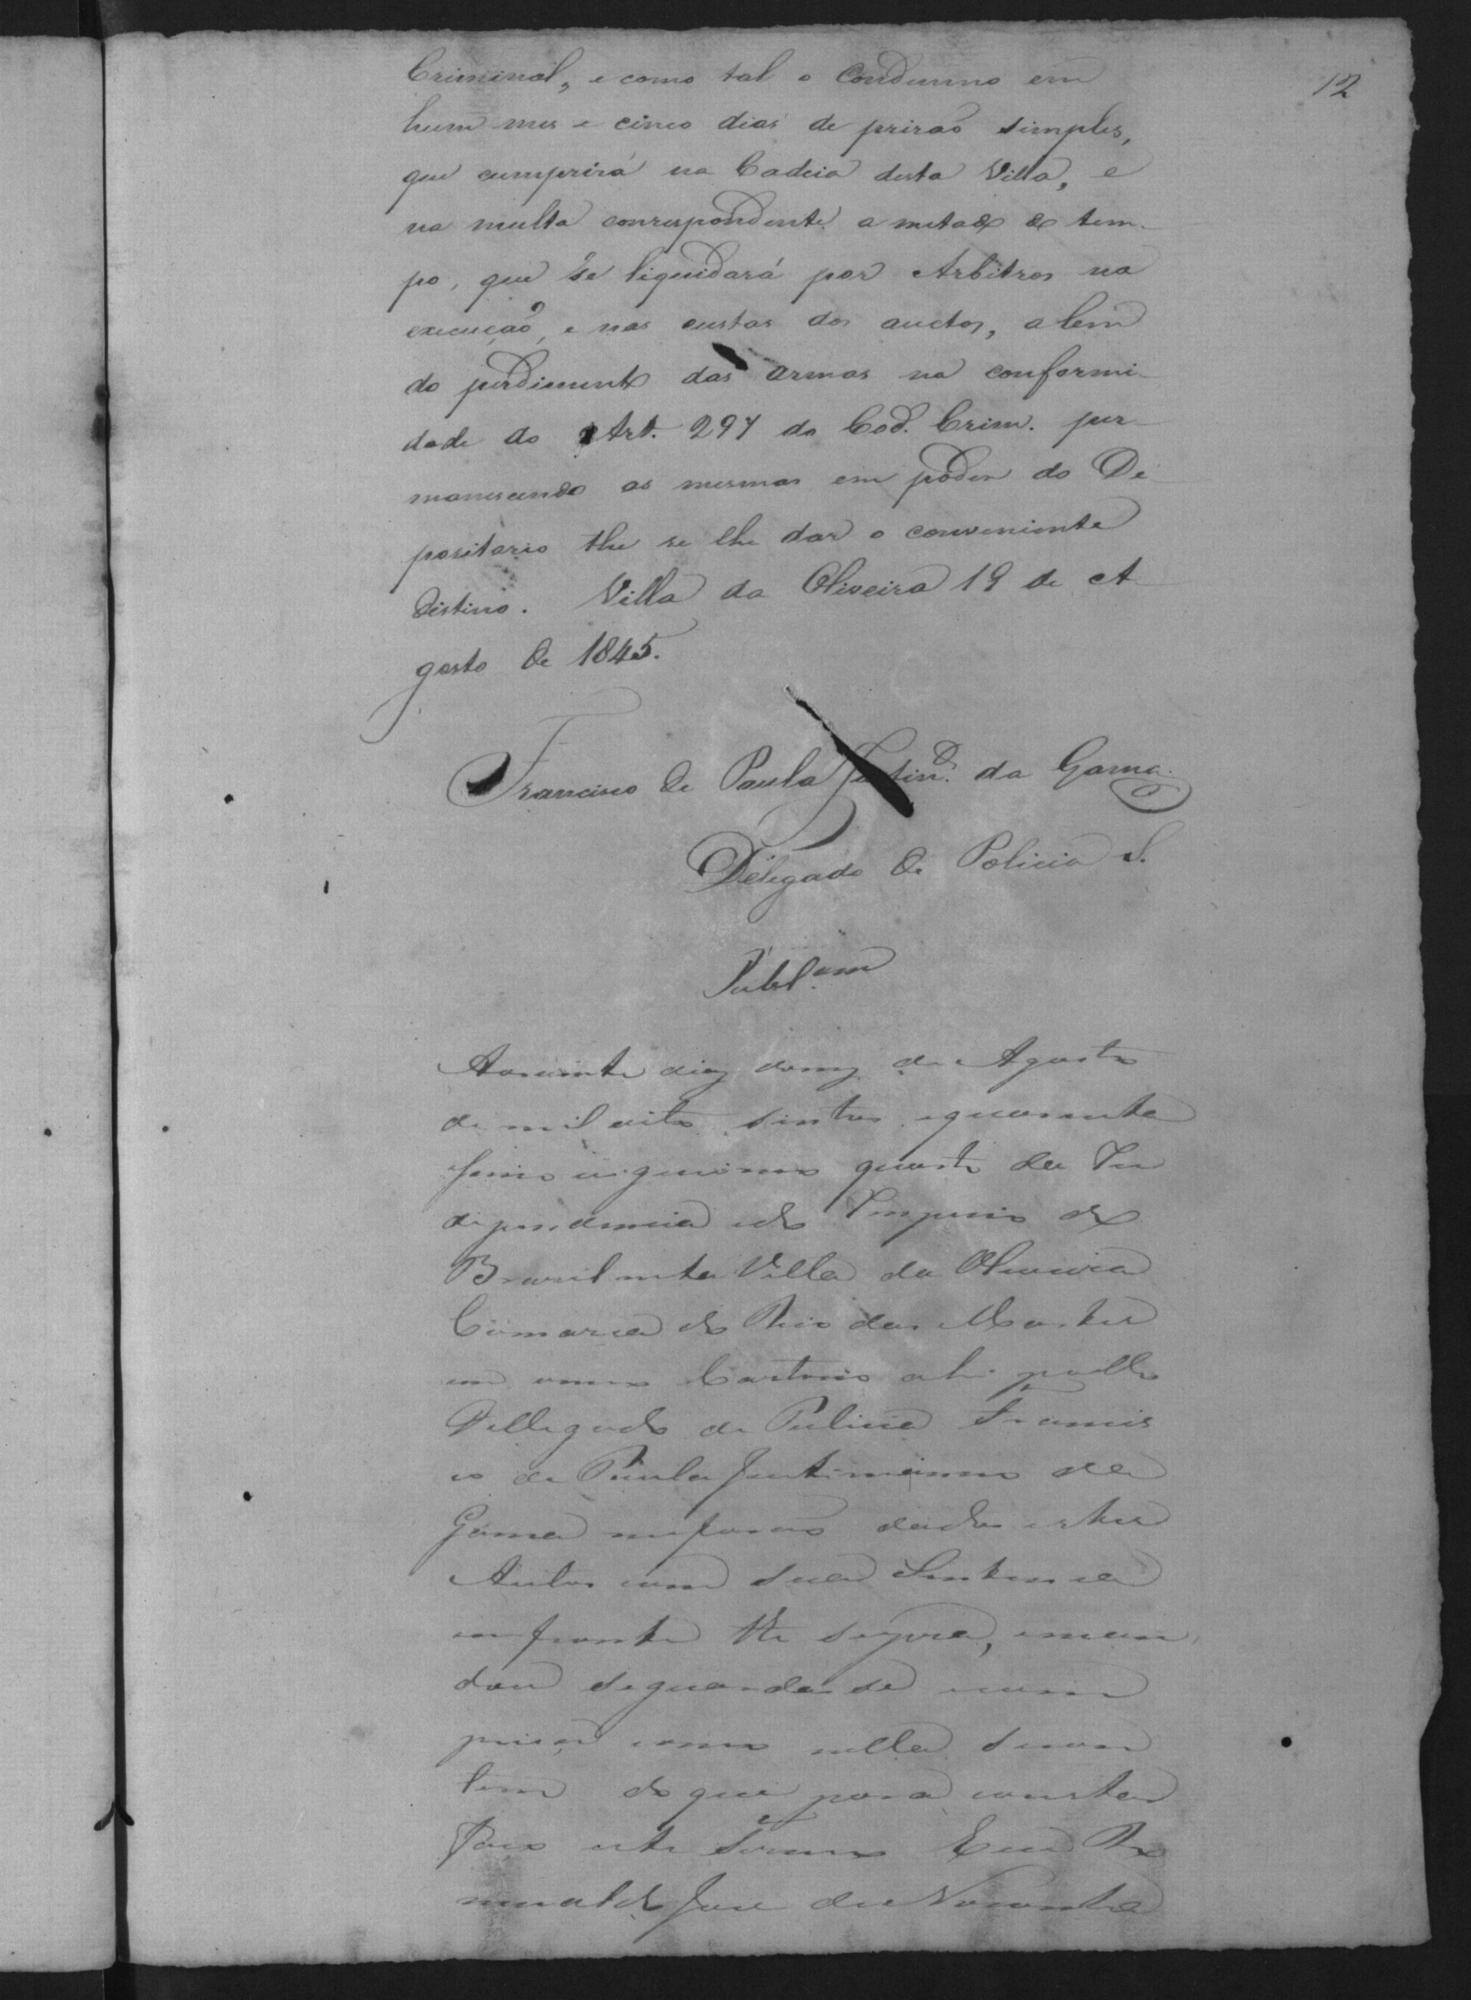 12
Criminal, e como tal o Condemno em
hum mes e cinco dias de prisaõ simples,
que cumprirá na Cadeia desta Villa, e
na multa correspondente a metade do tem-
po, que se liquidará por Arbitros na
execuçaõ, e nas custas dos auctos, alem
do perdimento das armas na conformi-
dade do Art. 297 do Cod. Crim. per-
manecendo as mesmas em poder do De-
positario the se lhe dar o conveniente
destino. Villa da Oliveira 19 de A-
gosto de 1845.
Francisco de Paula Justin.º da Gama
Delegado de Policia S.
Publ.am
Aos vinte dias do mez de Agosto
de mil oito sentos equarenta
sinco vigecimo quarto da In
dependencia edo Imperio do
Brazil nesta Villa da Oliveira
Comarca do Rio das Mortes
em meu Cartorio ahi pello
Dellegado de Pulicia Francis
co de Paula Justinianno da
Gama me foraõ dados estes
Autos com sua Sentenca
em fronte the segura, eman
dou seguardase ecum
prise como nella secon
tem do que para constar
faco este termo Eu
José de Noronha